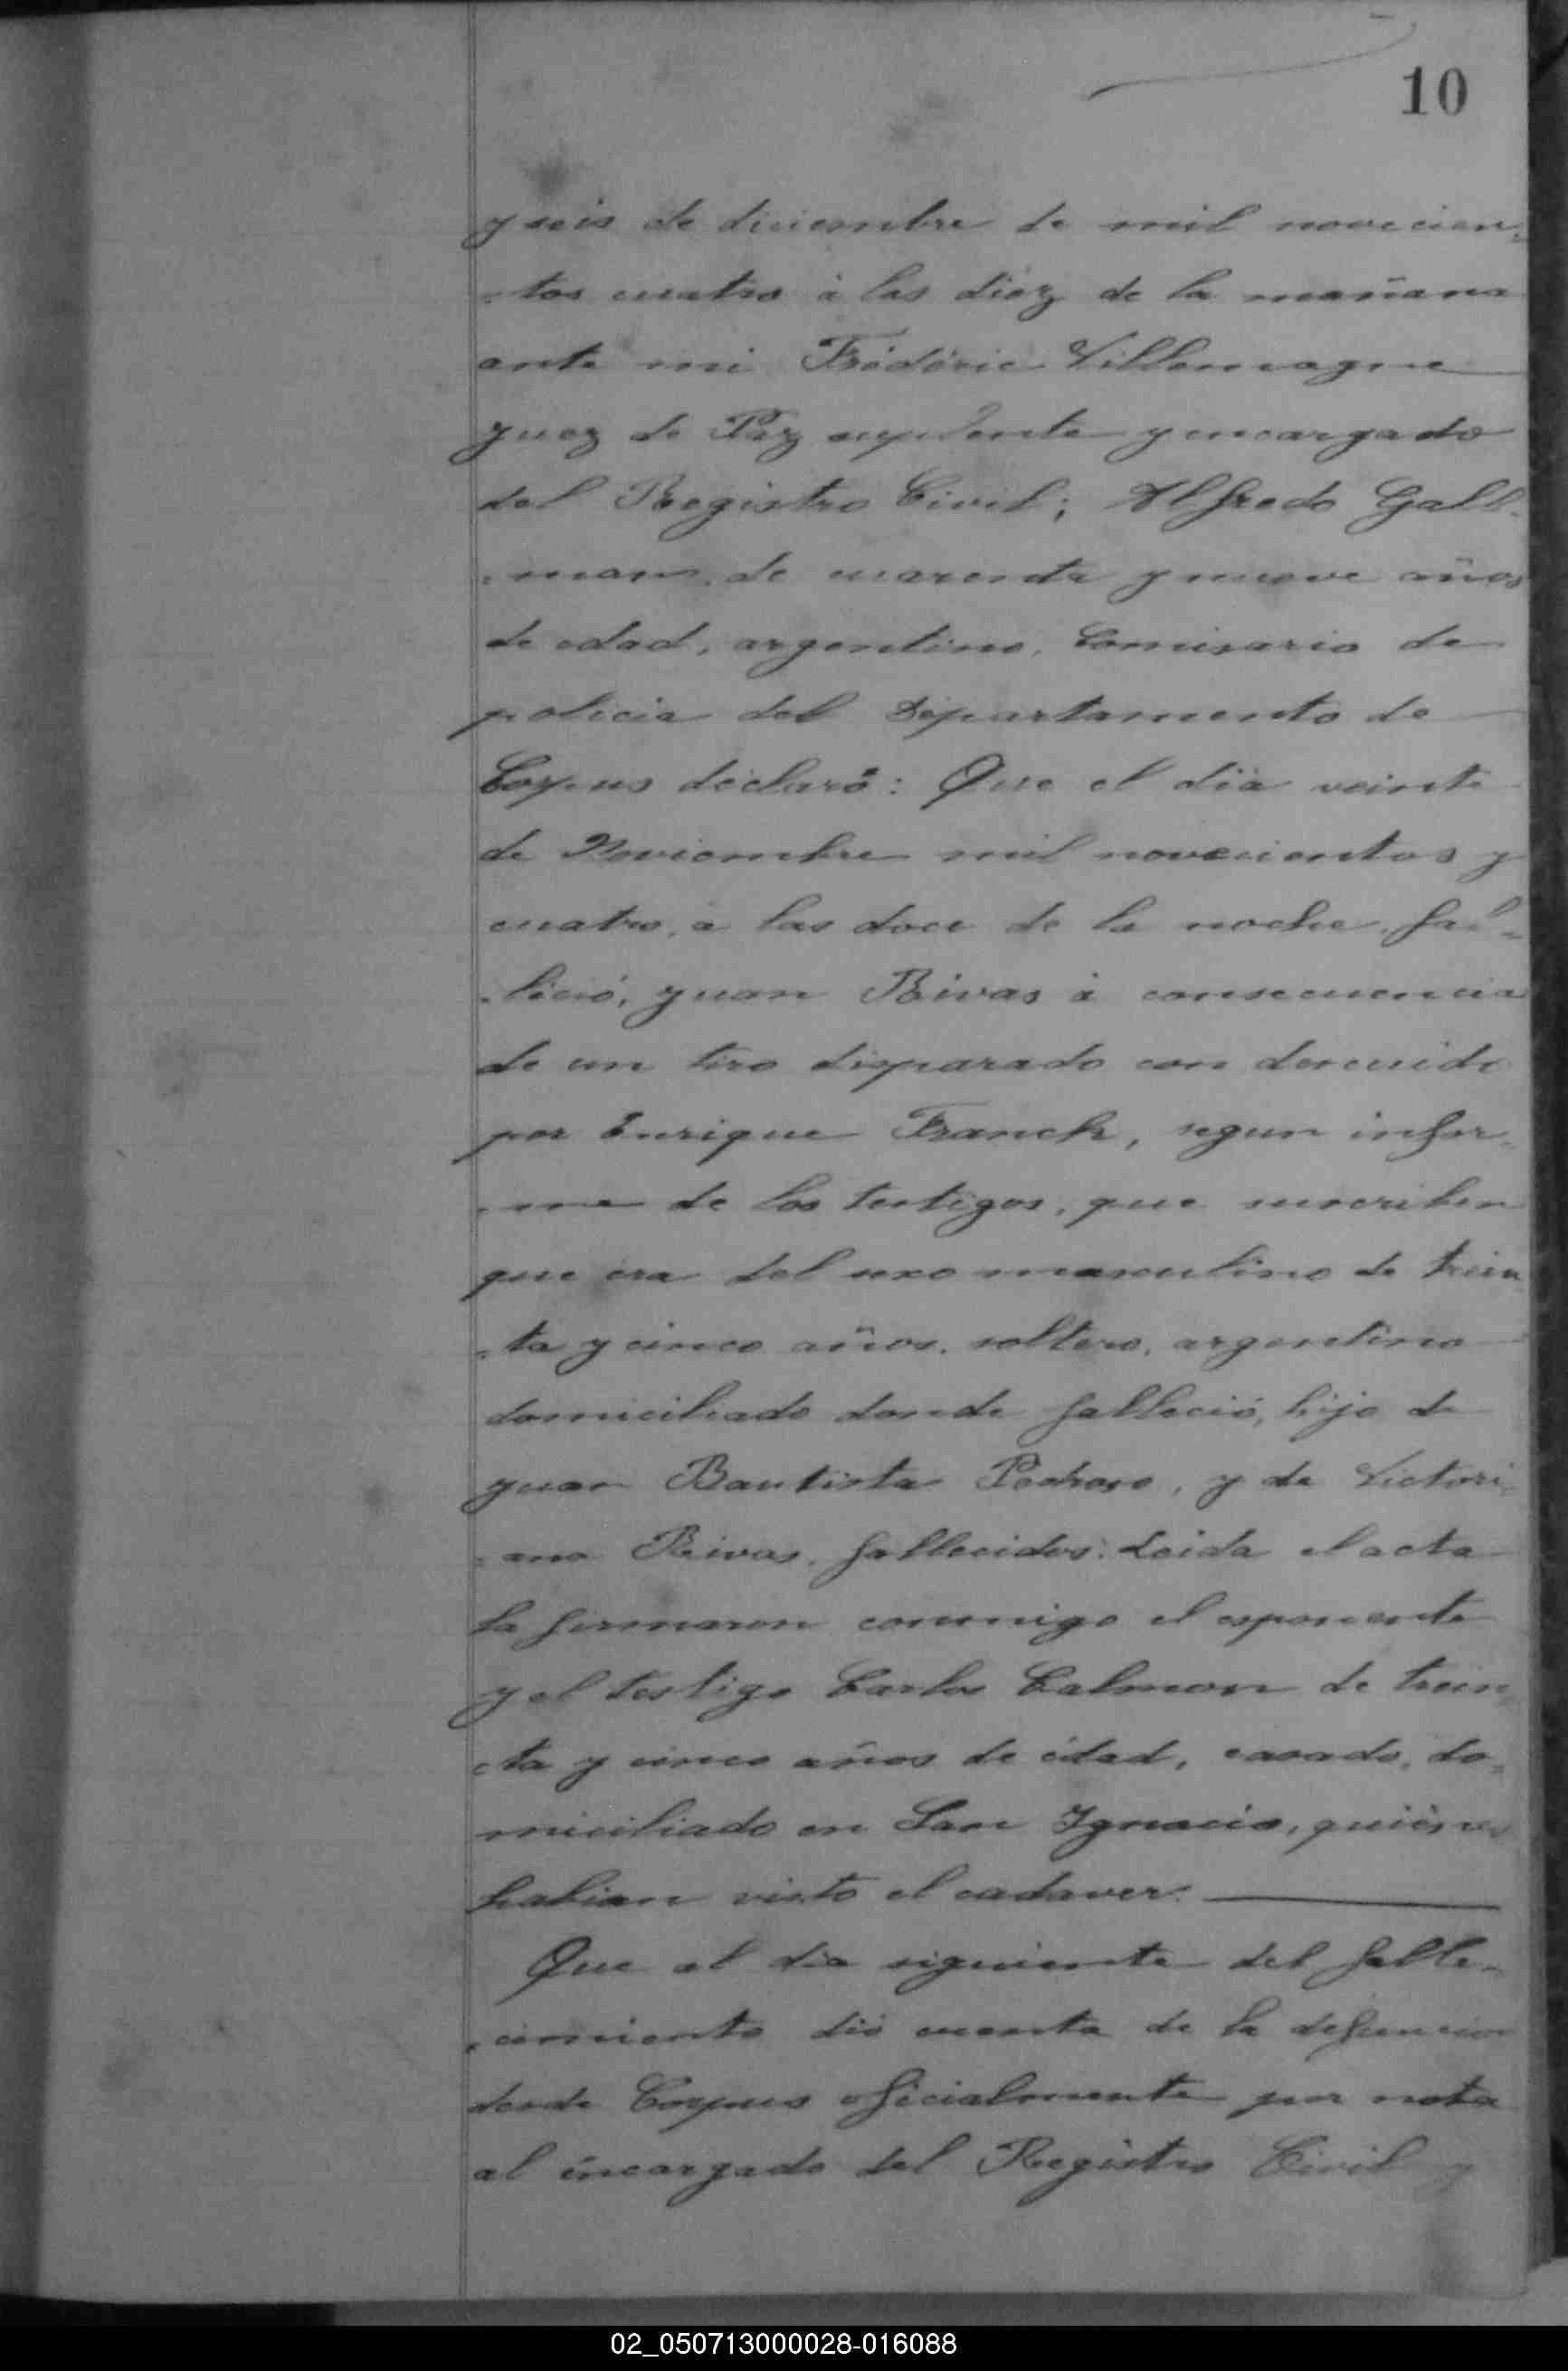 10
y seis de diciembre de mil novecien-
-tos cuatro á las diez de la mañana
ante mi Frédéric Villemagne
Juez de Paz suplente y encargado
del Registro Civil; Alfredo Gall-
-man, de cuarenta y nueve años
de edad, argentino, Comisario de
policia del Departamento de
Corpus declaró: Que el dia veinte
de Noviembre mil novecientos y
cuatro, a las doce de la noche, fal-
-leció, Juan Rivas á consecuencia
de un tiro disparado con descuido
por Enrique Franck, segun infor-
-me de los testigos, que suscriben
que era del sexo masculino de trein
-ta y cinco años, soltero, argentino
domiciliado donde falleció, hijo de
Juan Bautista Pedroso, y de Victori-
-ana Rivas, fallecidos: Leida el acta
la firmaron conmigo el esponente
y el testigo Carlos Calmon de trein
-ta y cinco años de edad, casado, do-
miciliado en San Ignacio, quiénes
habian visto el cadaver.
Que al dia siguiente del falle-
-cimiento dió cuenta de la defuncion
desde Corpus oficialmente por nota
al encargado del Registro Civil y
02_050713000028-016088